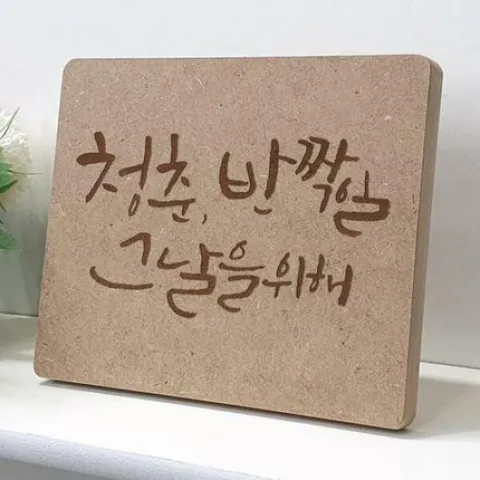 청춘, 반짝일
그날을위해